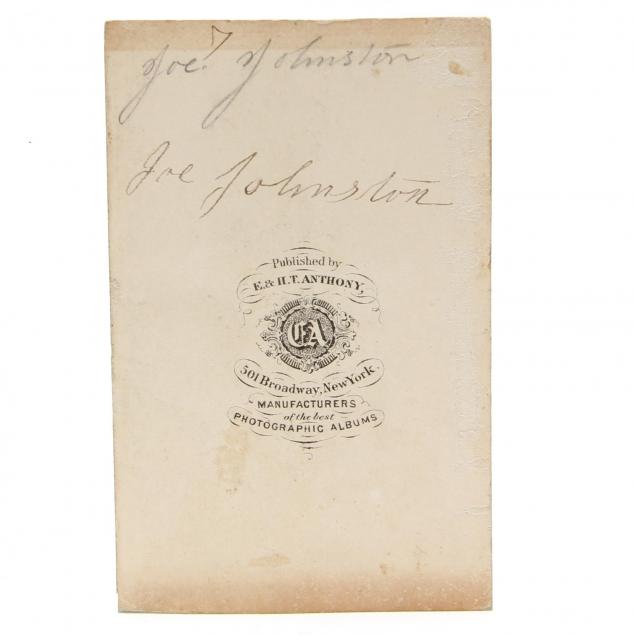 Joe. Johnston
Joe Johnston
Published by
E. & H.T. ANTHONY,
EA
501 Broadway, New York
MANUFACTURERS
of the best
PHOTOGRAPHIC ALBUMS